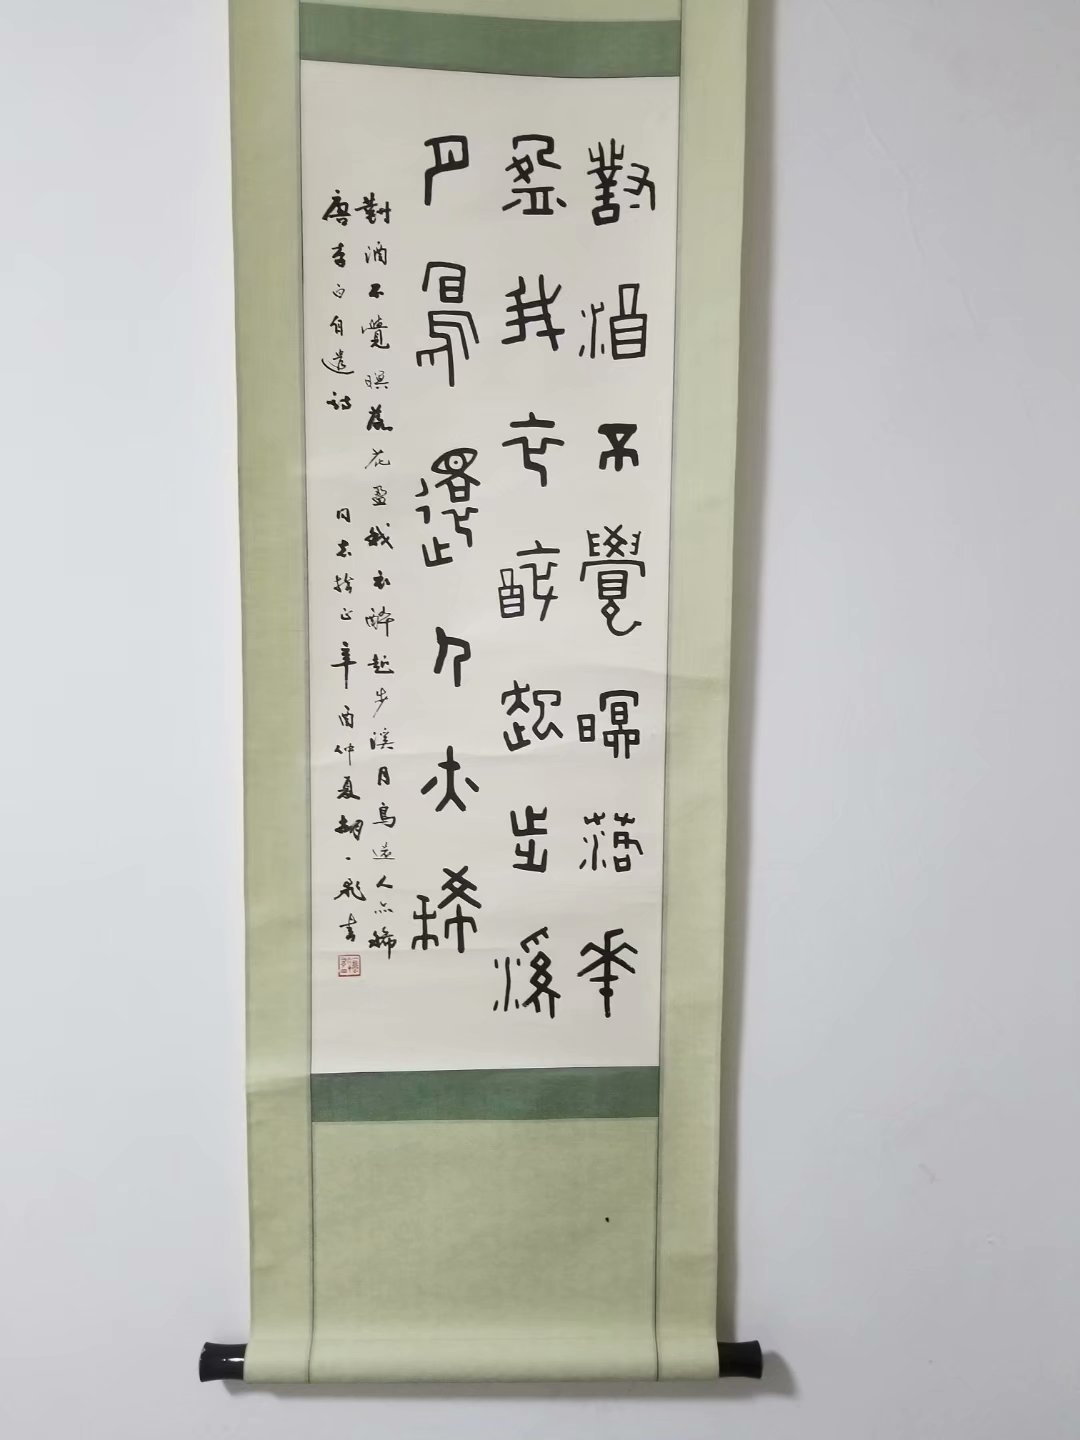 對酒不覺暝落華
盈我衣醉起步溪
月鳥還人亦稀
對酒不覺暝落花盈我衣醉起步溪月鳥還人亦稀
唐李白自遣詩 同志指正辛酉仲夏胡一飛書